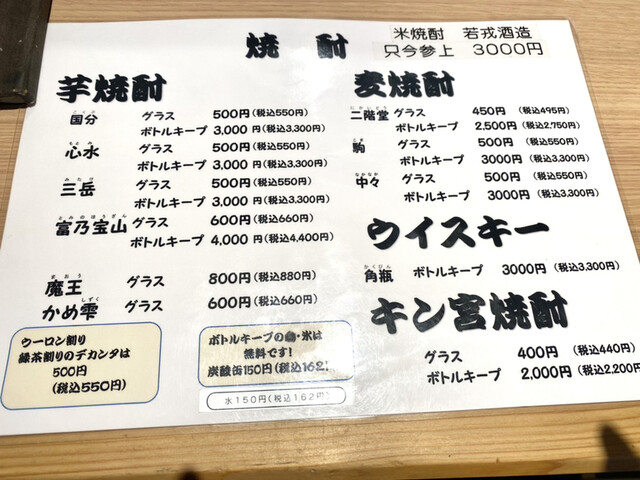 焼酎
米焼酎 若戎酒造
只今参上 3000円
芋焼酎
国分 グラス 500円(税込550円)
ボトルキープ 3,000円(税込3,300円)
心水 グラス 500円(税込550円)
ボトルキープ 3,000円(税込3,300円)
三岳 グラス 500円(税込550円)
みたけ
ボトルキープ 3,000円(税込3,300円)
とみのほうざん
富乃宝山 グラス 600円(税込660円)
ボトルキープ 4,000円(税込4,400円)
まおう
魔王 グラス 800円(税込880円)
しずく
かめ雫 グラス 600円(税込660円)
ウーロン割り
緑茶割りのデカンタは
500円
(税込550円)
ボトルキープの・氷は
無料です!
炭酸缶150円(税込162)
水150円(税込162円)
麦焼酎
にかいどう
二階堂 グラス 450円(税込495円)
ボトルキープ 2,500円(税込2,750円)
こま
駒 グラス 500円(税込550円)
ボトルキープ 3000円(税込3,300円)
なかなか
中々 グラス 500円(税込550円)
ボトルキープ 3000円(税込3,300円)
ウイスキー
かくびん
角瓶 ボトルキープ 3000円(税込3,300円)
キン宮焼酎
グラス 400円(税込440円)
ボトルキープ 2,000円(税込2,200円)